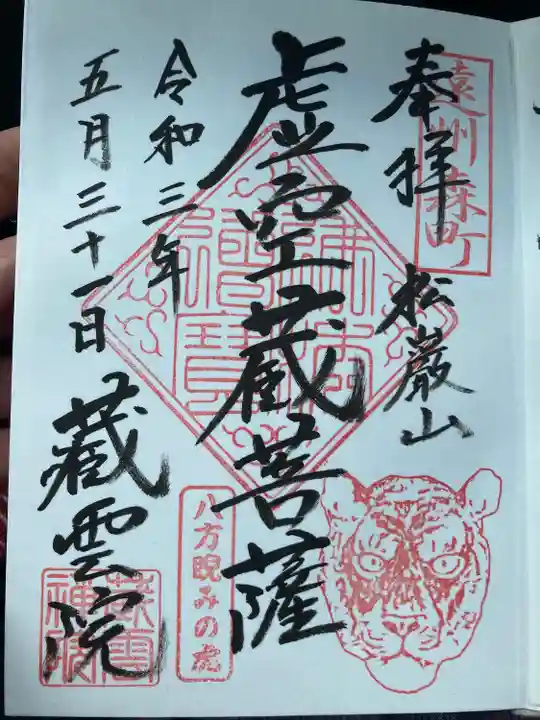 遠州森町
奉拝
松巖山
虚空蔵菩薩
佛法僧寶
八方睨みの虎
令和三年
五月三十一日
蔵雲院